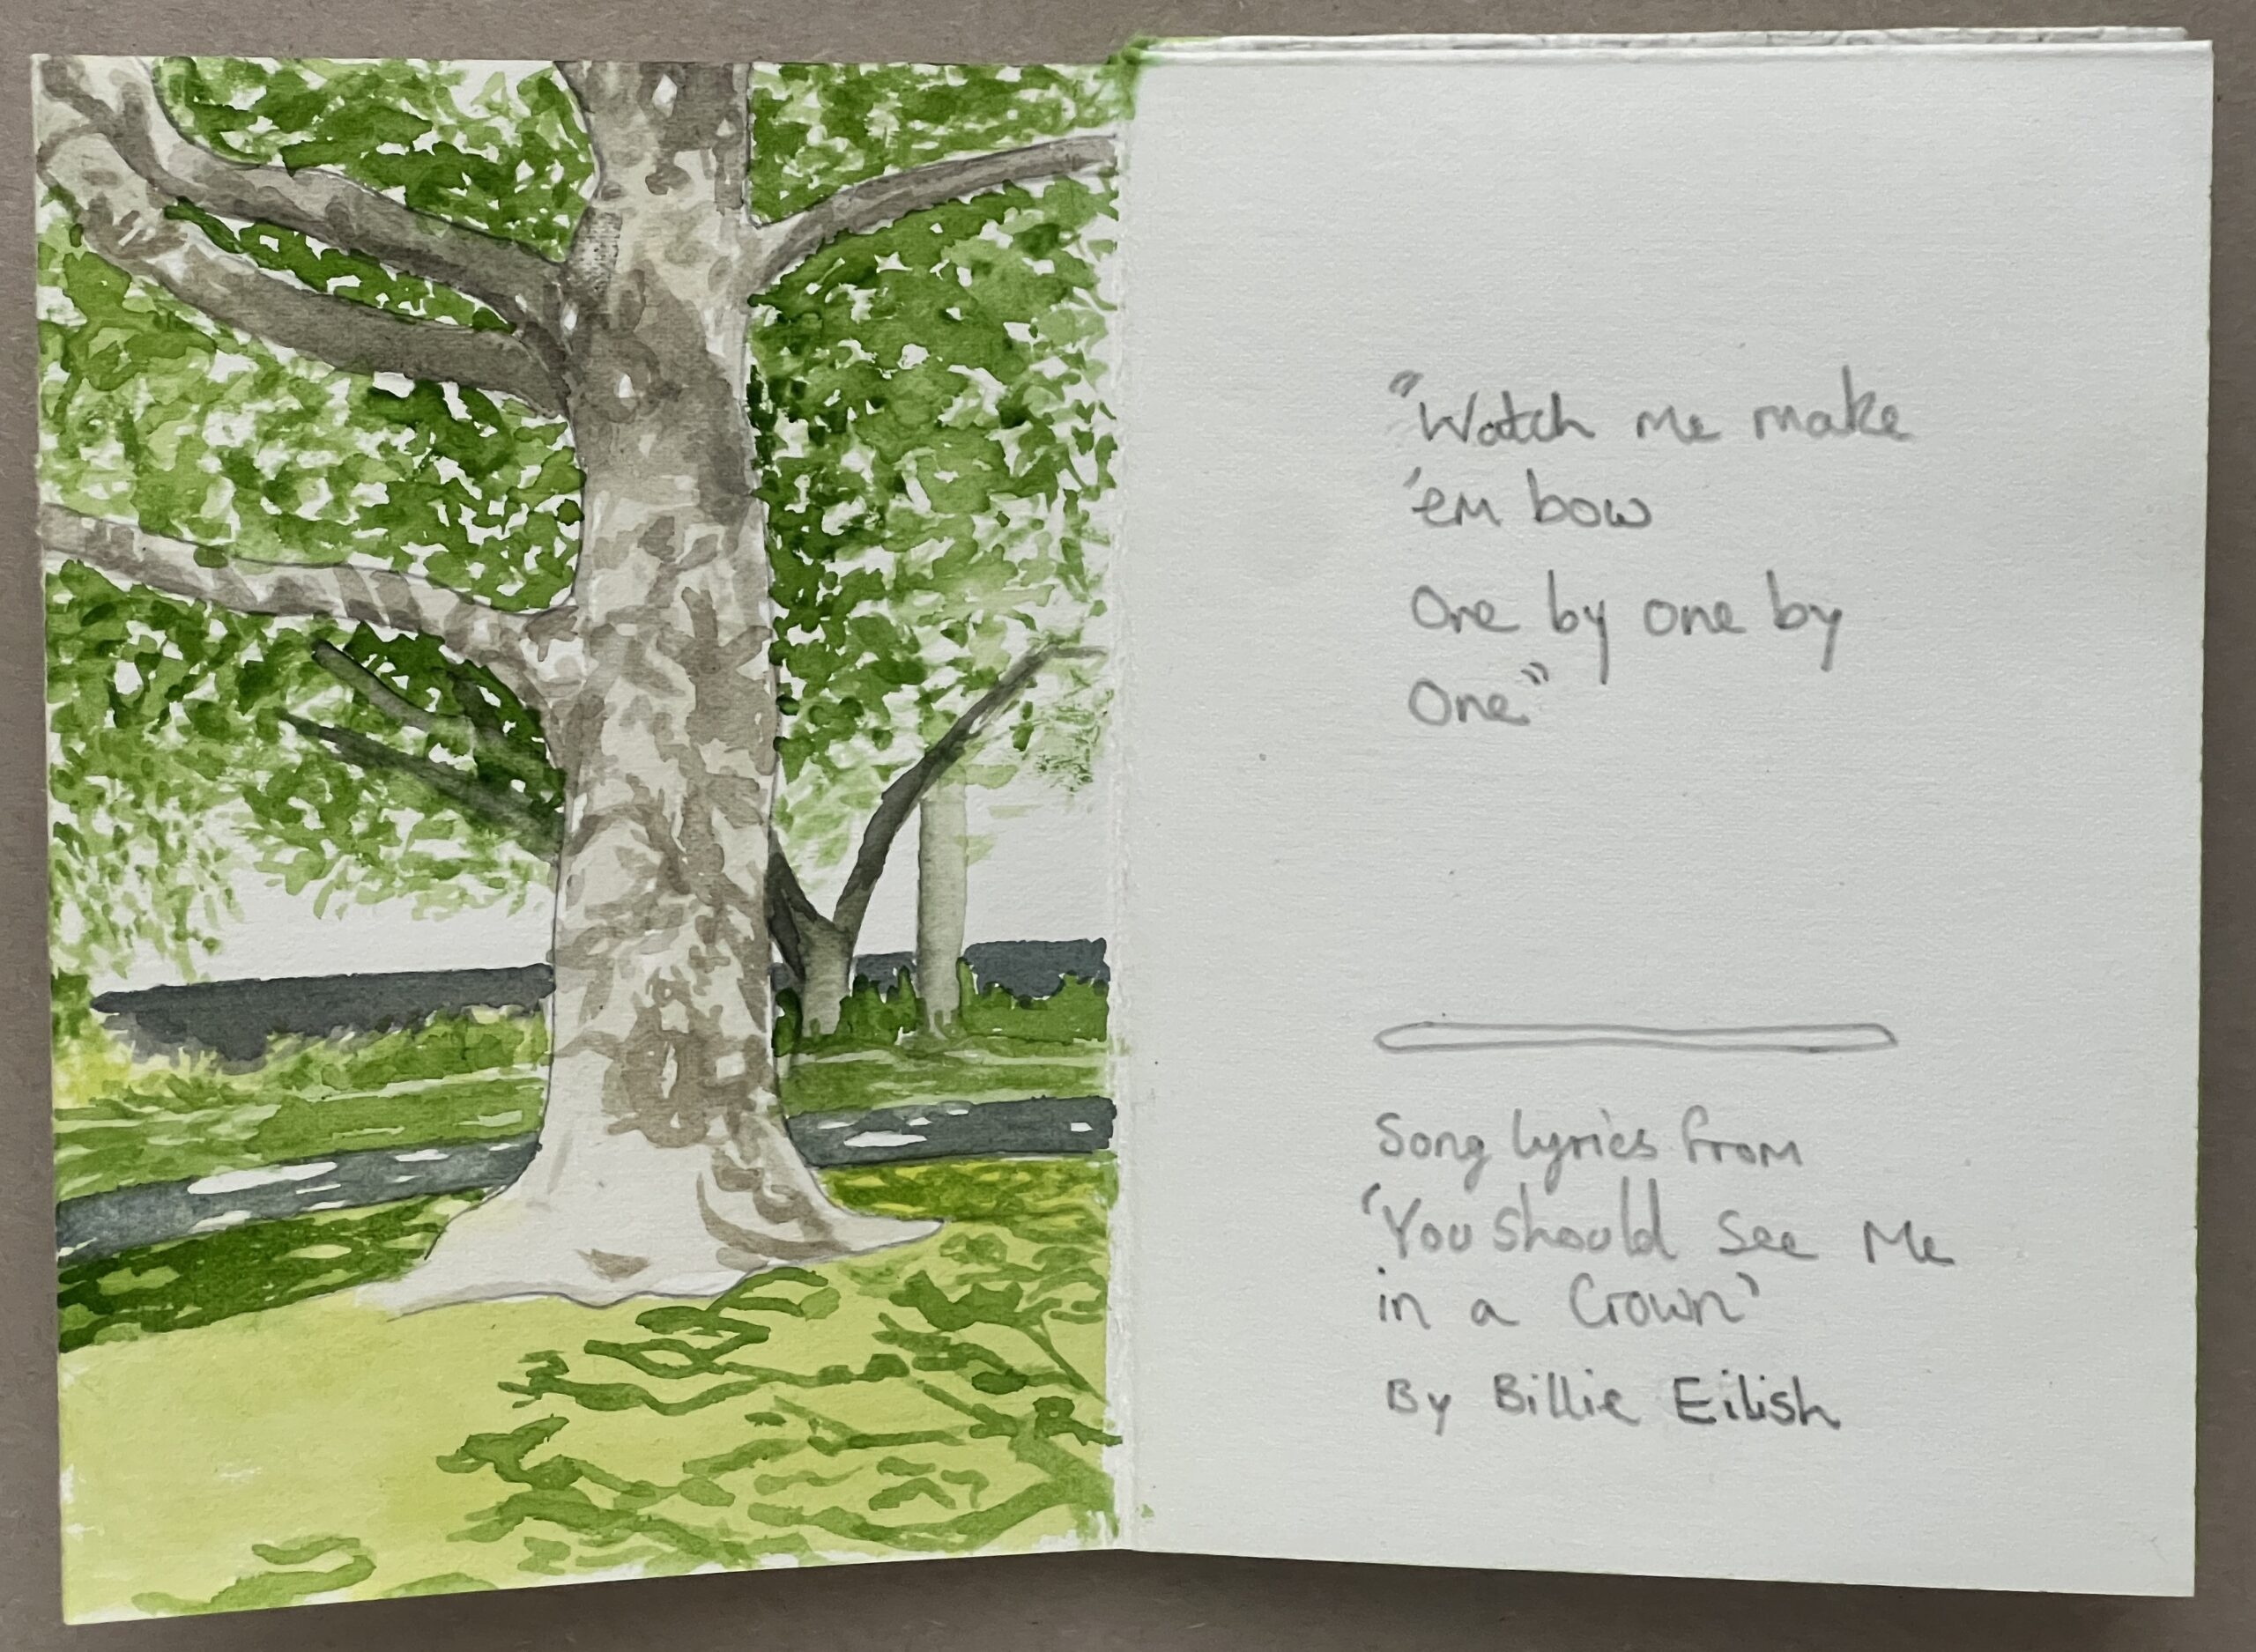 "Watch me make
'em bow
One by one by
One"
Song lyrics from
'You Should See Me
in a Crown'
By Billie Eilish